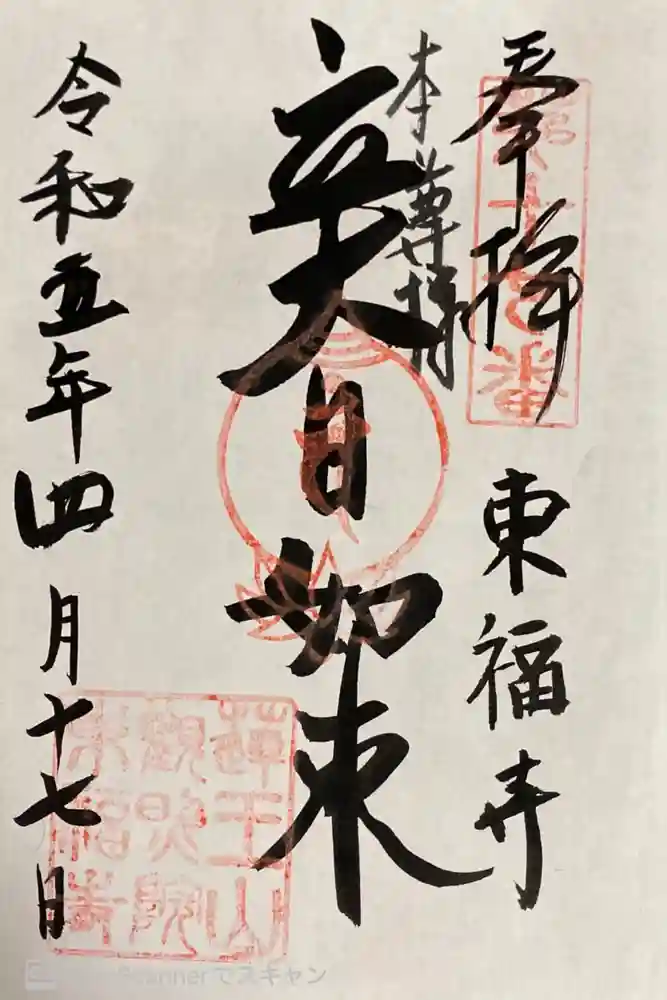 奉拝 東福寺
本尊様
大日如来
令和五年四月十七日
王山
觀照院
東福寺
Scannerでスキャン